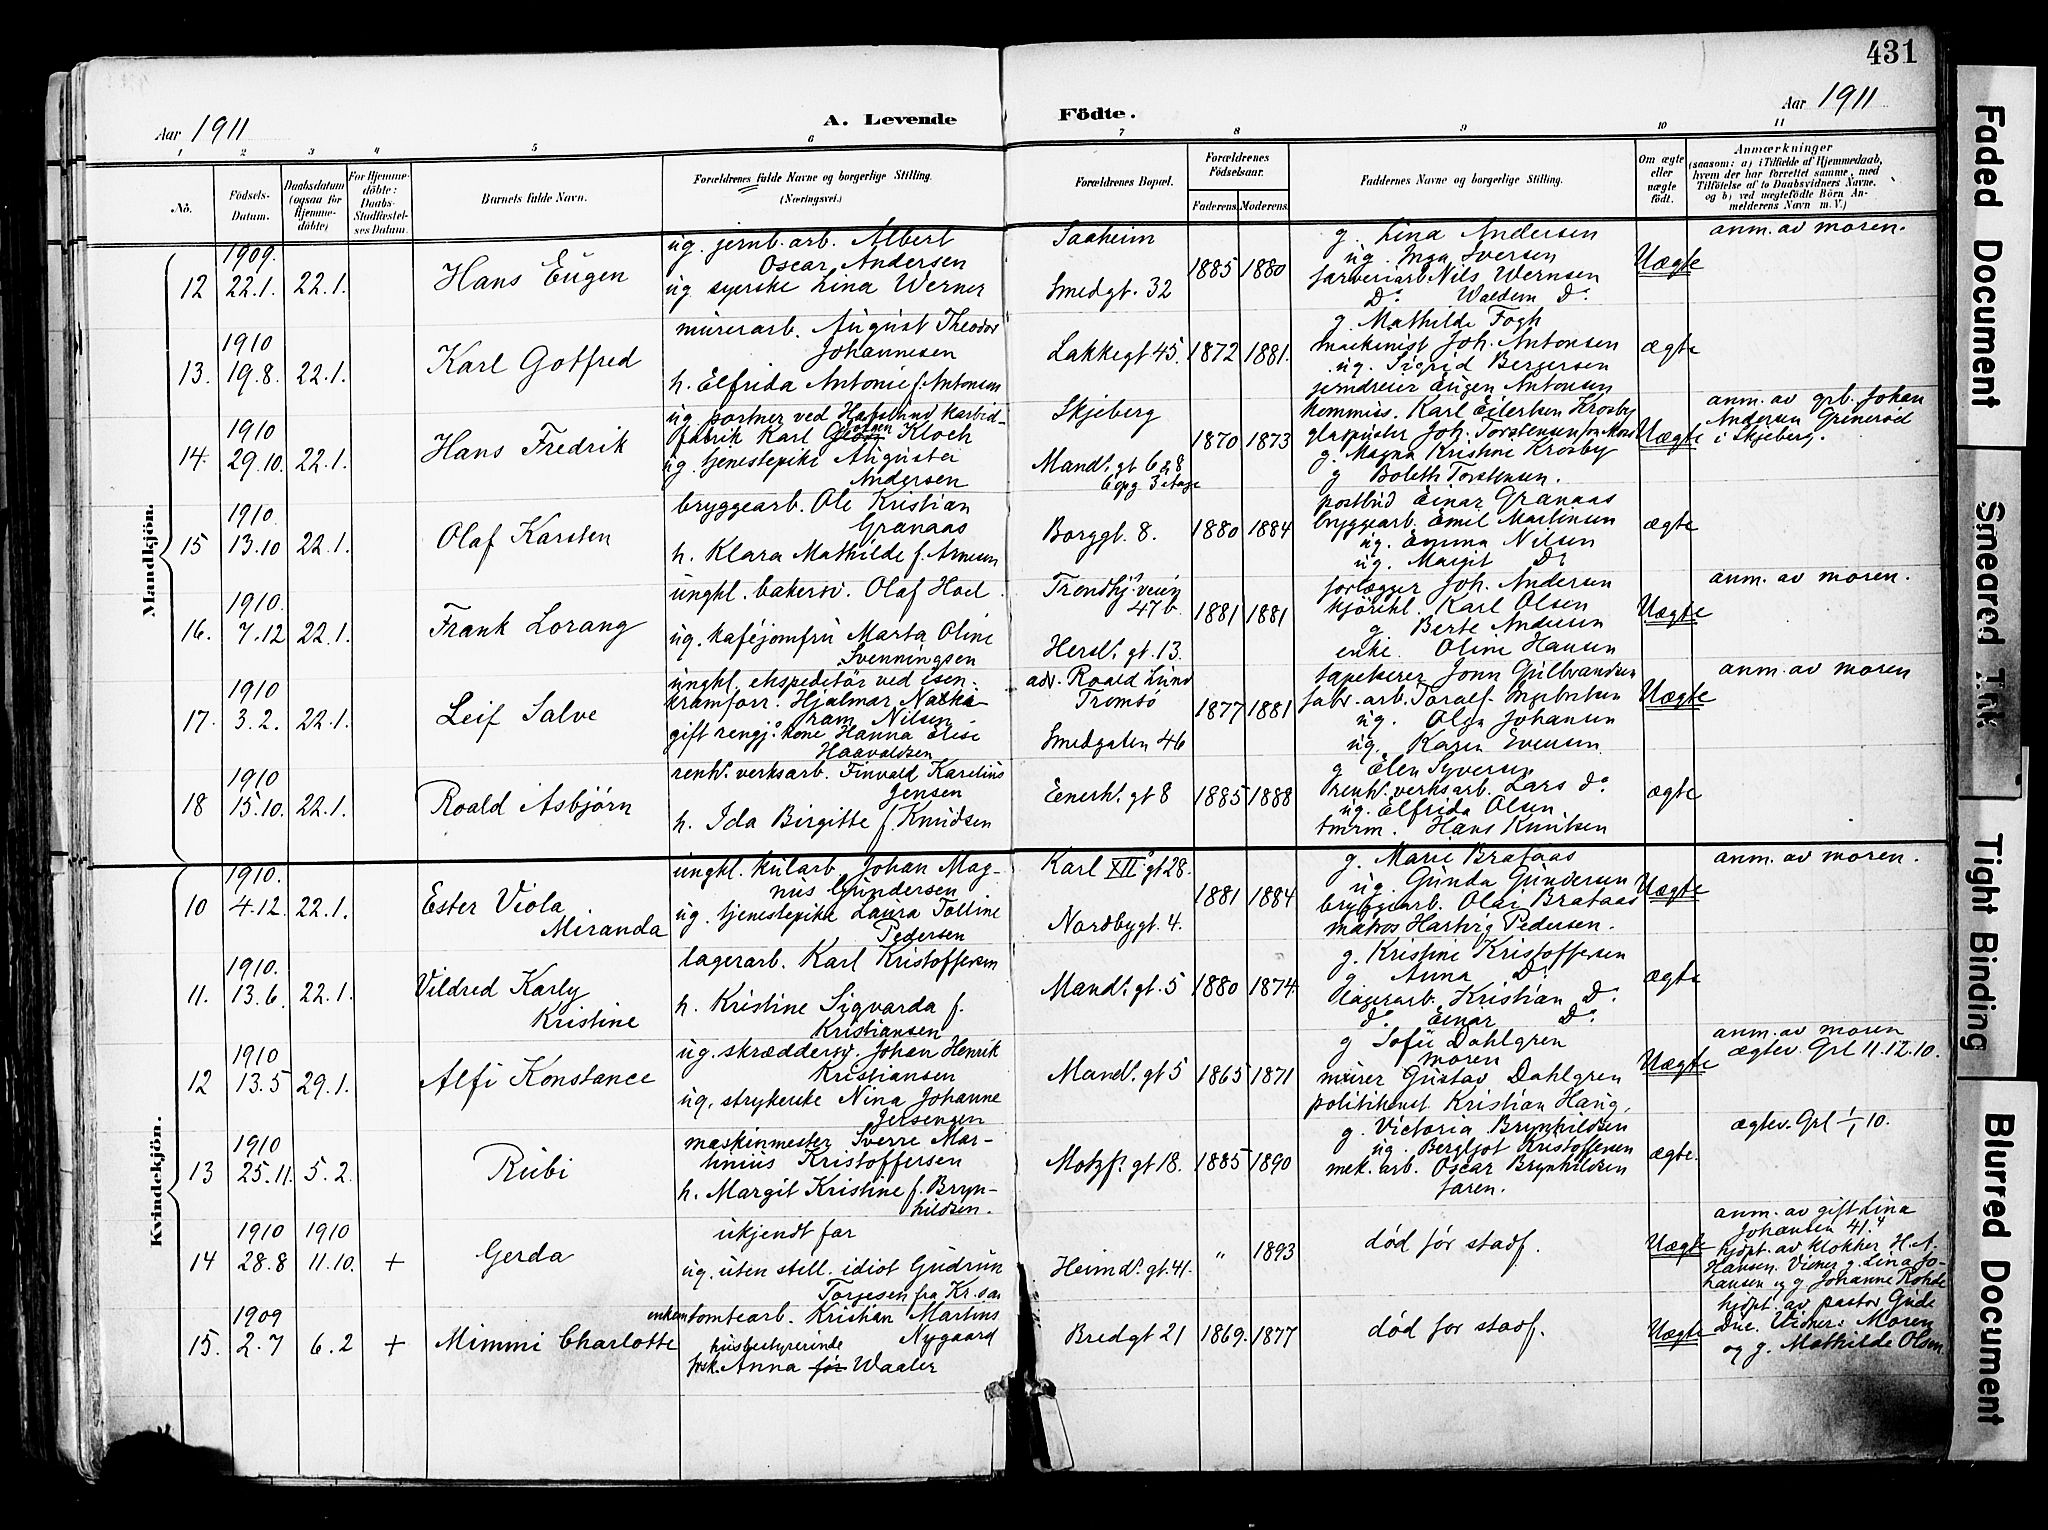 431
Aar 1911
A. Levende
Fødte.
Aar 1911
1 2 3 4 5 6 7 8 9 10 11
No.
Fødsels-Datum.
Daabsdatum (ogsaa for Hjemme-døbte)
For Hjemme-døbte: Daabs-Stadfæstel-ses Datum.
Barnets fulde Navn.
Forældrenes fulde Navne og borgerlige Stilling. (Næringsvei.)
Forældrenes Bopæl.
Forældrenes Fødselsaar.
Faderens. Moderens.
Faddernes Navne og borgerlige Stilling.
Om ægte eller uægte født.
Anmærkninger
(saasom: a) i Tilfælde af Hjemmedaab,
hvem der har forrettet samme, med
Tilføielse af to Daabsvidners Navne.
og b) ved uægtefødte Børn An-
melderens Navn m. V.)
Mandkjøn.
12
1909.
22.1.
22.1.
Hans Eugen
ug. jernb. arb. Albert
Oscar Andersen
ug syerske Lina Werner
Saaheim
Smedgt. 32
1885 1880
g. Lina Andersen
ug. Inga Iversen
farveriarb. Nils Wernsen
Do. Waldem Do.
Uægte
anm. av moren.
13.
1910
19.8.
22.1.
Karl Gotfred
murerarb. August Theodor
Johannesen
h. Elfrida Antonie f. Antonsen
Lakkegt 45.
1872 1881.
g. Mathilde Fogh
maskinist Joh. Antonsen
ug. Sigrid Bergersen
jerndreier Eugen Antonsen
ægte
14.
1910
29.10.
22.1.
Hans Fredrik
ug. portner ved Hafslund karbid-
fabrik Karl Kloch
ug. tjenestepike Augusta
Andersen
Skjeberg
Mands. gt 6 & 8
6 opg 3 etage
1870 1873
kommiss. Karl Eilertsen Krosby
glaspuster Joh. Torstensen
g. Magna Kristine Krosby
g Boleth Torstensen.
Uægte
anm. av grb. Johan
Andersen Grinerød
i Skjeberg.
15
1910
13.10
22.1.
Olaf Karsten
bryggearb. Ole Kristian
Granaas
h. Klara Mathilde f. Arnesen
Borggt. 8.
1880 1884
postbud Einar Granaas
bryggearb. Emil Martinsen
ug. Emma Nilsen
ug. Margit Do
ægte
16.
1910.
7.12
22.1.
Frank Lorang
ungkl. bakersv. Olaf Hoel.
ug. kaféjomfru Marta Oline
Svenningsen
Trondhj. veien
47 b.
Hersl. gt. 13.
1881 1881
forlægger Joh. Andersen
kjørekl. Karl Olsen
g Berte Andersen
enke. Oline Hansen
Uægte
anm. av moren.
17.
1910
3.2.
22.1.
Leif Salve
ungkl. ekspeditør ved isen-
kramforr. Hjalmar Natha-
nam Nilsen
gift rengj. kone Hanna Elise
Haavaldsen
adr. Roald Lund
Tromsø
Smedgaten 46
1877 1881
tapetserer John Gulbrandsen
fabr. arb. Toralf Ingebretsen
ug. Olga Johansen
ug. Karen Evensen
Uægte
anm. av moren
18
1910
15.10.
22.1.
Roald Asbjørn
renh. verksarb. Finvald Karelius
Jensen
h. Ida Birgitte f. Knudsen
Enerh. gt 8
1885 1888
g Elen Syversen
renh. verksarb. Lars Do
ug. Elfrida Olsen
tmrm. Hans Knutsen
ægte
Kvindekjøn.
10
1910.
4.12.
22.1.
Ester Viola
Miranda
ungkl. kularb. Johan Mag-
nus Gundersen
ug. tjenestepike Laura Tolline
Pedersen
Karl XII. gt 28.
Nordbygt. 4.
1881 1884
g. Marie Brataas
ug. Gunda Gundersen
bryggearb. Olai Brataas
matros Hartvig Pedersen.
Uægte
anm. av moren.
11.
1910.
13.6.
22.1.
Vildred Karly
Kristine
lagerarb. Karl Kristoffersen
h. Kristine Sigvarda f.
Kristiansen
Mands. gt. 5
1880 1874
g. Kristine Kristoffersen
g Anna Do.
lagerarb. Kristian Do.
do. Einar Do.
ægte
12
1910
13.5
29.1.
Alfi Konstance
ug. skræddersv. Johan Henrik
Kristiansen
ug. strykerske Nina Johanne
Jensen
Mands. gt 5
1865 1871
g Sofie Dahlgren
moren
murer Gustav Dahlgren
politikonst. Kristian Haug.
Uægte
anm. av moren
ægtev. Grl 11.12.10.
13
1910
25.11.
5.2.
Rubi
maskinmester Sverre Mar-
thinius Kristoffersen
h. Margit Kristine f. Bryn-
hildsen.
Motzf. gt 18.
1885 1890
g. Victoria Brynhildsen
ug. Bergljot Kristoffersen
mek. arb. Oscar Brynhildsen
faren.
ægte.
ægtev. Grl 1/1 10.
14
1910
28.8
1910
11.10.
+
Gerda
ukjendt far
ug. uten still. idiot Gudrun
Torjesen fra Kr.san
Heimd. gt. 41.
" 1893
død før stadf.
Uægte
anm. av gift Lina
Johansen 41.4
hjdpt. av klokker H. A.
Hansen. Vidner g. Lina Jo-
hansen og g. Johanne Rohde
15.
1909
2.7
6.2
+
Mimmi Charlotte
enkem tomtearb. Kristian Martins
Nygaard
husbestyrerinde
fsk. Anna før Waaler
Bredgt 21
1869. 1877
død for stadf.
Uægte
hjdpt. av pastor Gude
Due. Vidner: Moren
og g. Mathilde Olsen.
Faded Document
Smeared Ink
Tight Binding
Blurred Document